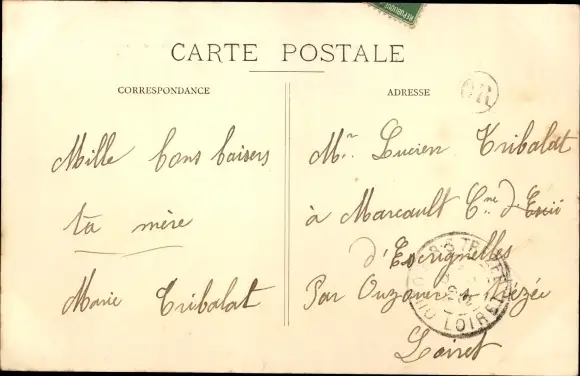 CARTE POSTALE
CORRESPONDANCE
Mille bons baisers
ta mère
Marie Tribalat
ADRESSE
OR
Mr. Lucien Tribalat
à Marcault Cne de
d'Escrignelles
Par Ouzouer s Trézée
Loiret
LOIRET